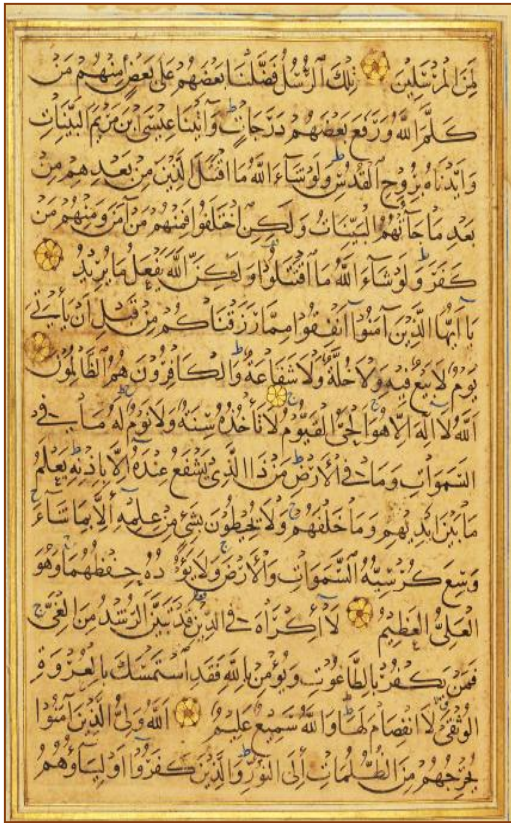 لَمِنَ الْمُرْسَلِينَ تِلْكَ الرُّسُلُ فَضَّلْنَا بَعْضَهُمْ عَلَى بَعْضٍ مِنْهُمْ مَنْ
كَلَّمَ اللّٰهُ وَرَفَعَ بَعْضَهُمْ دَرَجَاتٍ وَآتَيْنَا عِيسَى ابْنَ مَرْيَمَ الْبَيِّنَاتِ
وَأَيَّدْنَاهُ بِرُوحِ الْقُدُسِ وَلَوْ شَاءَ اللّٰهُ مَا اقْتَتَلَ الَّذِينَ مِنْ بَعْدِهِمْ مِنْ
بَعْدِ مَا جَاءَتْهُمُ الْبَيِّنَاتُ وَلَكِنِ اخْتَلَفُوا فَمِنْهُمْ مَنْ آمَنَ وَمِنْهُمْ مَنْ
كَفَرَ وَلَوْ شَاءَ اللّٰهُ مَا اقْتَتَلُوا وَلَكِنَّ اللّٰهَ يَفْعَلُ مَا يُرِيدُ
يَا أَيُّهَا الَّذِينَ آمَنُوا أَنْفِقُوا مِمَّا رَزَقْنَاكُمْ مِنْ قَبْلِ أَنْ يَأْتِيَ
يَوْمٌ لَا بَيْعٌ فِيهِ وَلَا خُلَّةٌ وَلَا شَفَاعَةٌ وَالْكَافِرُونَ هُمُ الظَّالِمُونَ
اَللّٰهُ لَا اِلٰهَ اِلَّا هُوَ الْحَيُّ الْقَيُّومُ لَا تَأْخُذُهُ سِنَةٌ وَلَا نَوْمٌ لَهُ مَا فِي
السَّمَوَاتِ وَمَا فِي الْأَرْضِ مَنْ ذَا الَّذِي يَشْفَعُ عِنْدَهُ اِلَّا بِاِذْنِهِ يَعْلَمُ
مَا بَيْنَ أَيْدِيهِمْ وَمَا خَلْفَهُمْ وَلَا يُحِيطُونَ بِشَيْءٍ مِنْ عِلْمِهِ اِلَّا بِمَا شَاءَ
وَسِعَ كُرْسِيُّهُ السَّمَوَاتِ وَالْأَرْضَ وَلَا يَؤُدُهُ حِفْظُهُمَا وَهُوَ
الْعَلِيُّ الْعَظِيمُ لَا اِكْرَاهَ فِي الدِّينِ قَدْ تَبَيَّنَ الرُّشْدُ مِنَ الْغَيِّ
فَمَنْ يَكْفُرْ بِالطَّاغُوتِ وَيُؤْمِنْ بِاللّٰهِ فَقَدِ اسْتَمْسَكَ بِالْعُرْوَةِ
الْوُثْقَى لَا انْفِصَامَ لَهَا وَاللّٰهُ سَمِيعٌ عَلِيمٌ اَللّٰهُ وَلِيُّ الَّذِينَ آمَنُوا
يُخْرِجُهُمْ مِنَ الظُّلُمَاتِ اِلَى النُّورِ وَالَّذِينَ كَفَرُوا اَوْلِيَاؤُهُمُ